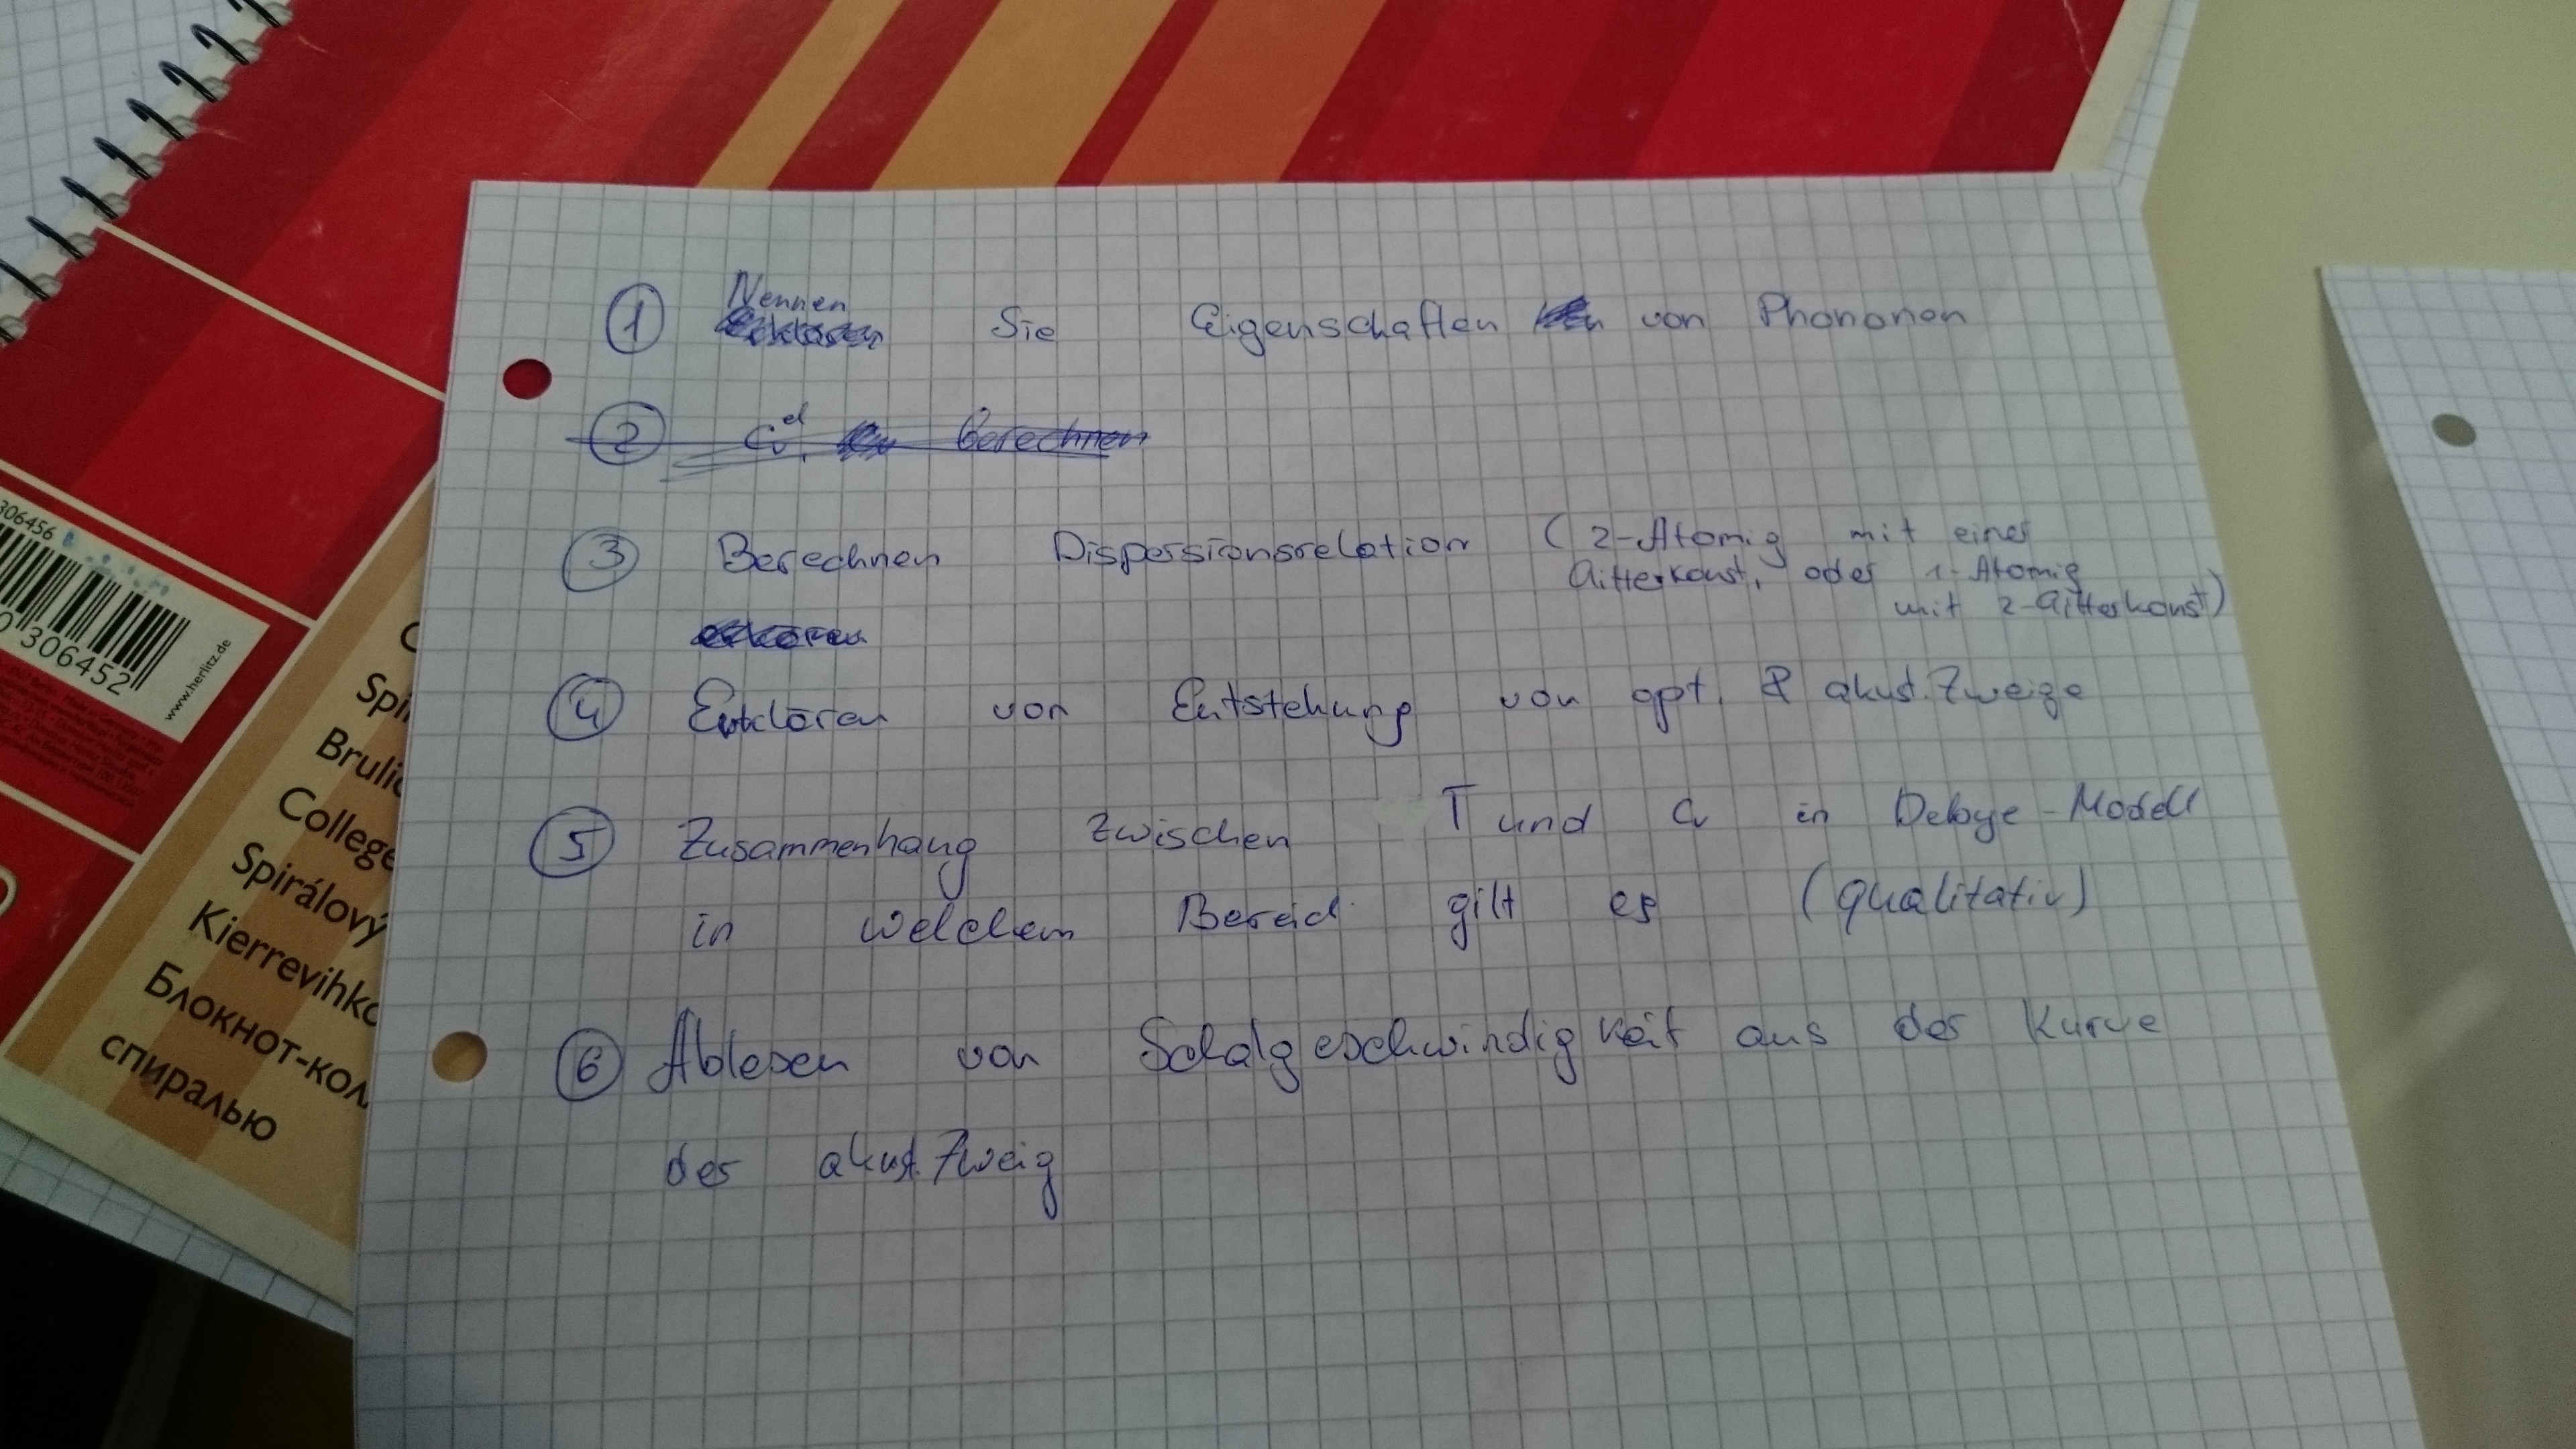 ① Nennen Sie Eigenschaften von Phononen
② Cv berechnen
③ Berechnen Dispersionsrelation (2-Atomig mit einer
Gitterkonst. oder 1-Atomig
mit 2-Gitterkonst)
④ Erklären von Entstehung von opt. & akust. Zweige
⑤ Zusammenhang zwischen T und Cv in Debye-Modell
in welchem Bereich gilt es (qualitativ)
⑥ Ablesen von Schalgeschwindigkeit aus der Kurve
der akust. Zweig
306456
0 306452
www.herlitz.de
Spi
Brulio
College
Spirálový
Kierrevihko
Блокнот-кол
спиралью